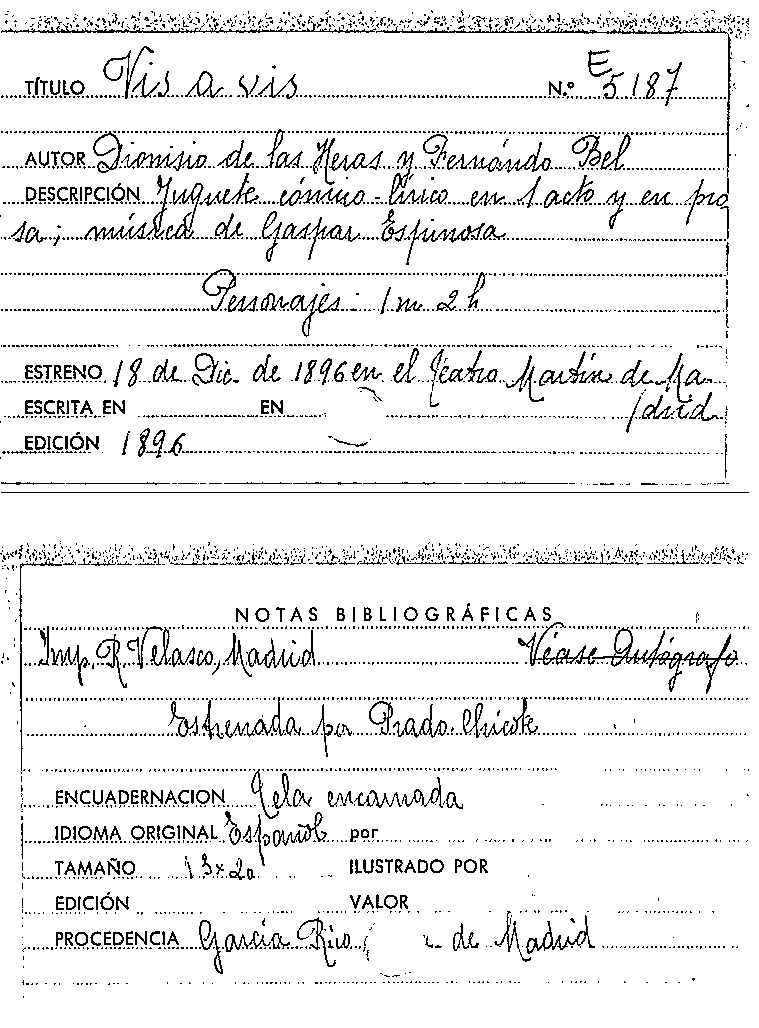 TÍTULO Vis a vis N.º E 5187
AUTOR Dionisio de las Heras y Fernándo Bel
DESCRIPCIÓN Juguete cómico-lírico en 1 acto y en pro
sa; música de Gaspar Espinosa
Personajes: 1 m 2 h
ESTRENO 18 de Dic. de 1896 en el Teatro Martín de Ma-
drid
ESCRITA EN EN
EDICIÓN 1896
NOTAS BIBLIOGRÁFICAS
Imp. R. Velasco, Madrid Véase Autógrafo
Estrenada por Prado-Chicote
ENCUADERNACION Tela encarnada
IDIOMA ORIGINAL Español por
TAMAÑO 13x20 ILUSTRADO POR
EDICIÓN VALOR
PROCEDENCIA García Rico de Madrid